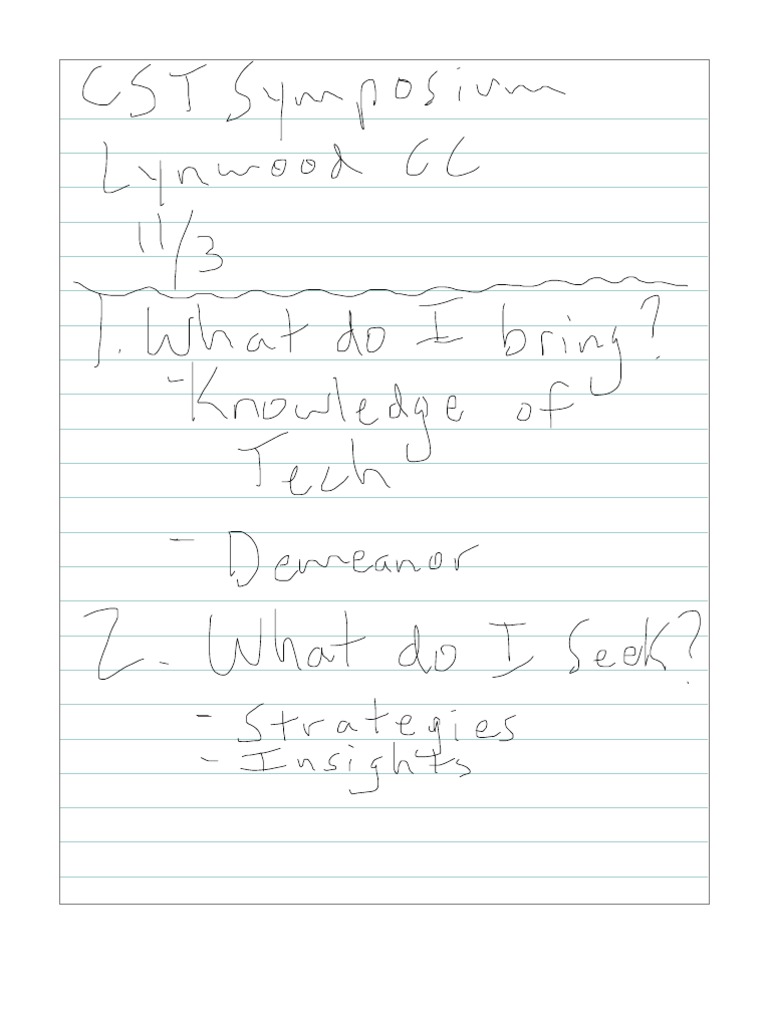 CST Symposium
Lynwood CC
11/3
1. What do I bring?
- Knowledge of
Tech
- Demeanor
2. What do I seek?
- Strategies
- Insights